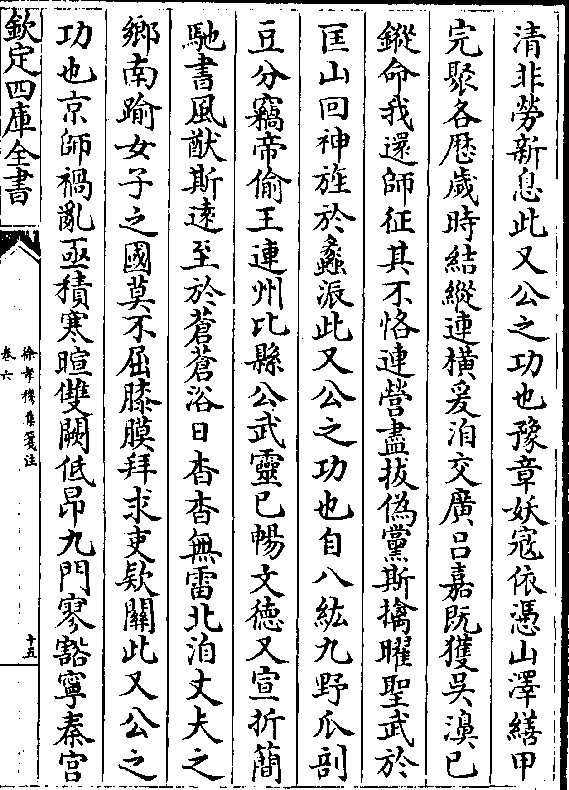 清非勞新息此又公之功也豫章妖寇依憑山澤繕甲
完聚各歴歲時結縱連橫爰洎交廣吕嘉既獲吳濞已
鏦命我還師征其不恪連營盡拔偽黨斯擒曜聖武於
匡山回神旌於蠡派此又公之功也自八紘九野瓜剖
豆分竊帝偷王連州比縣公武靈已暢文德又宣折簡
馳書風猷斯逺至於蒼蒼浴日杳杳無雷北洎丈夫之
鄉南踰女子之國莫不屈膝膜拜求吏欵關此又公之
功也京師禍亂亟積寒暄雙闕低昂九門寥豁寧秦宫
欽定四庫全書
徐孝穆集箋注
卷六
十五